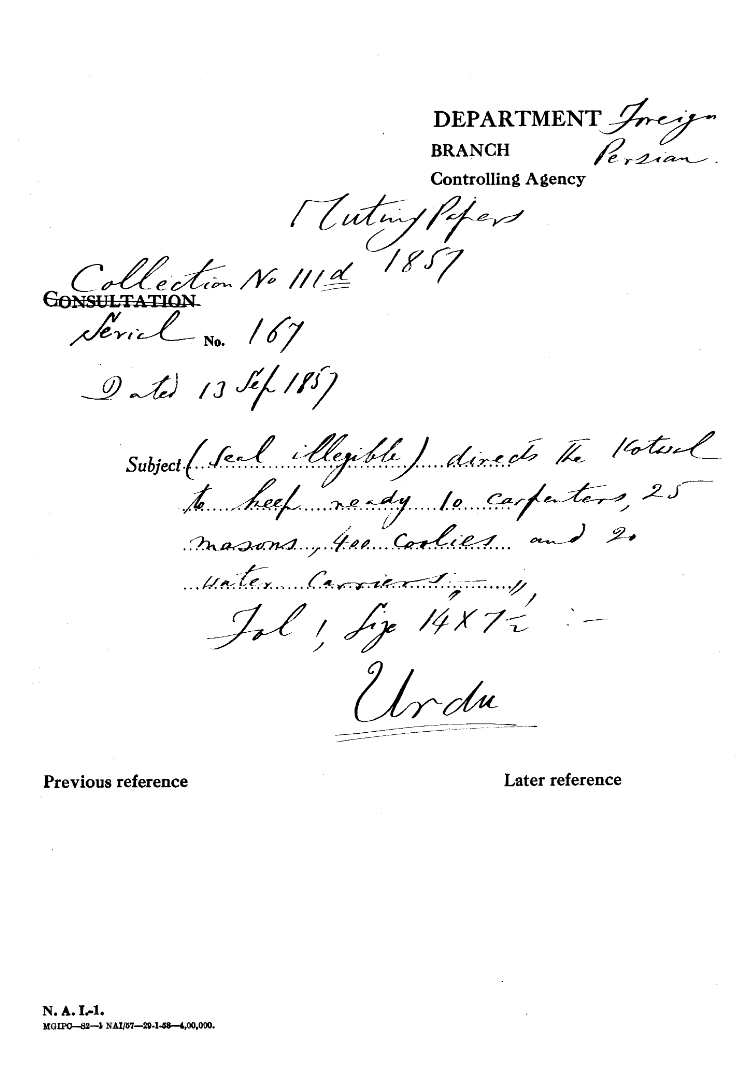 DEPARTMENT Foreign
BRANCH Persian.
Controlling Agency
Mutiny Papers
1857
Collection No 111d
CONSULTATION
Serial No. 167
Dated 13 Sep 1857
Subject (Seal illegible) directs the Kotwal
to keep ready 10 carpenters, 25
masons, 400 coolies and 20
water carriers :— "
Fol 1, Size 14" X 7½" :—
Urdu
Previous reference Later reference
N. A. I.-1.
MGIPC—S2—1 NAI/57—29-1-58—4,00,000.